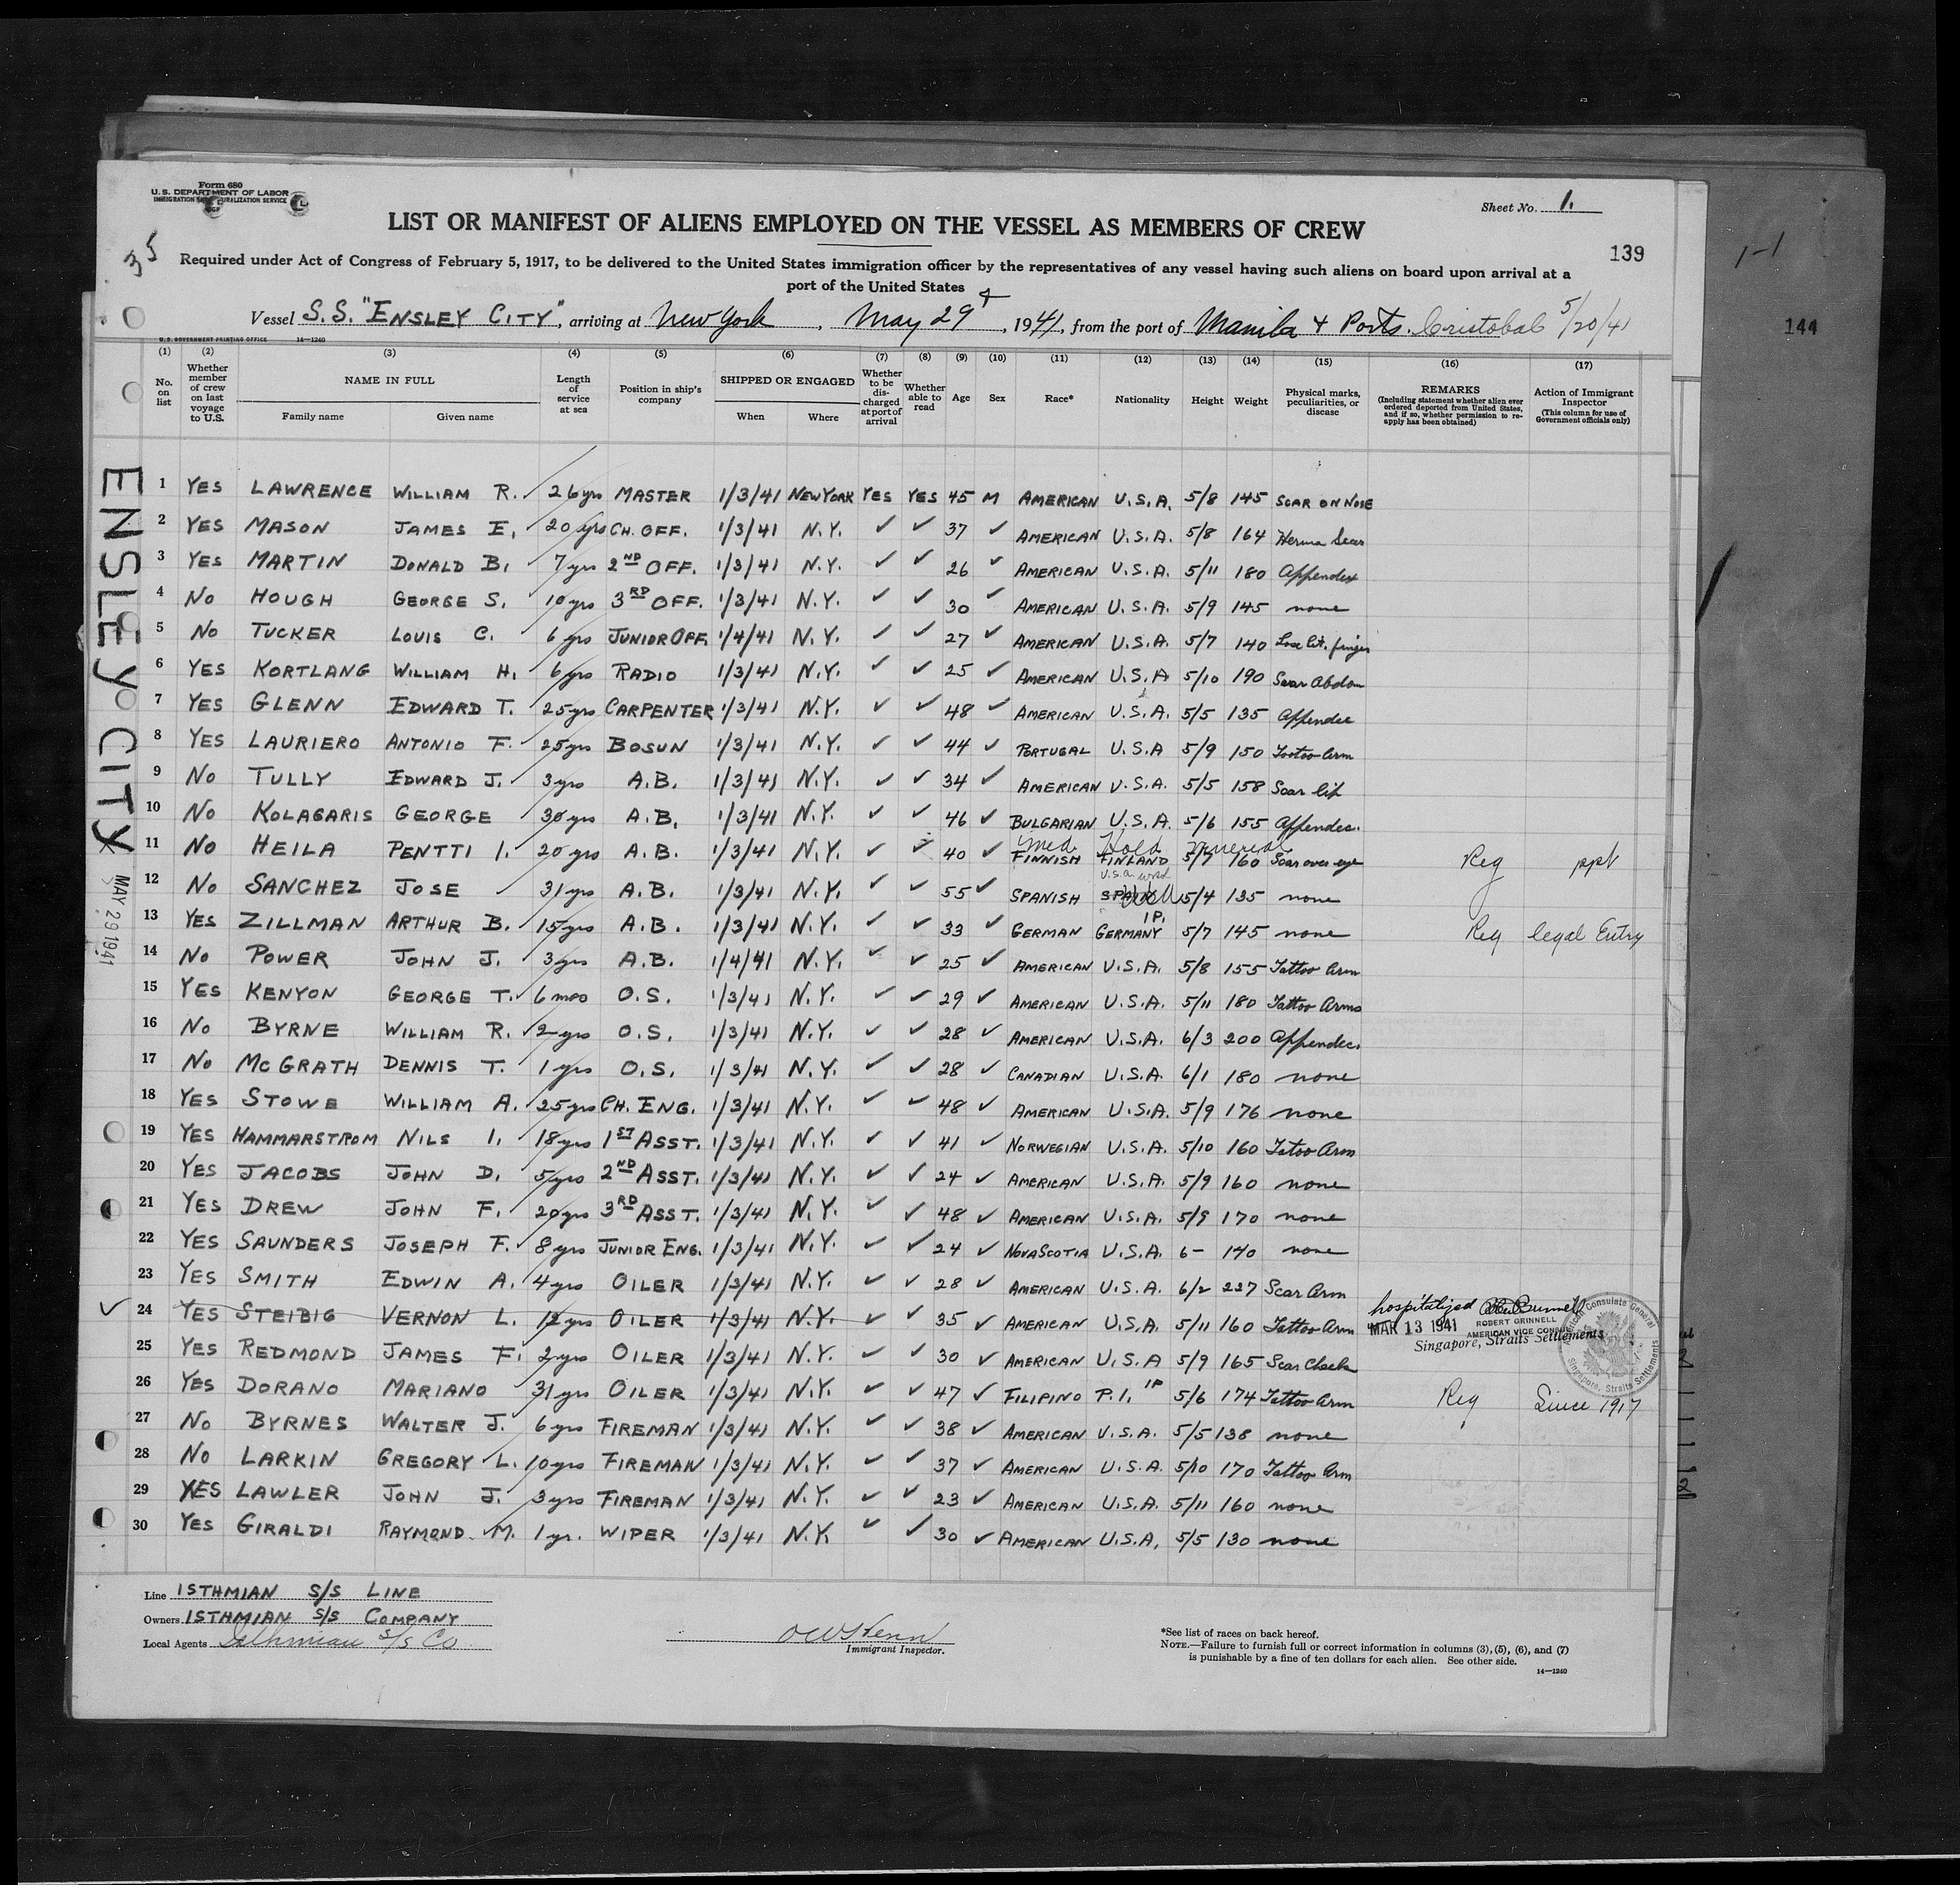 Form 680
U.S. DEPARTMENT OF LABOR
Sheet No. 1.
LIST OR MANIFEST OF ALIENS EMPLOYED ON THE VESSEL AS MEMBERS OF CREW
139
35
Required under Act of Congress of February 5, 1917, to be delivered to the United States immigration officer by the representatives of any vessel having such aliens on board upon arrival at a
port of the United States
Vessel S.S. "ENSLEY CITY", arriving at New York, May 29, 1941, from the port of Manila & Ports. Cristobal 5/20/41
144
1-1
U.S. GOVERNMENT PRINTING OFFICE 14—1240
(1) (2) (3) (4) (5) (6) (7) (8) (9) (10) (11) (12) (13) (14) (15) (16) (17)
No. on list
Whether member of crew on last voyage to U.S.
NAME IN FULL
Family name Given name
Length of service at sea
Position in ship's company
SHIPPED OR ENGAGED
When Where
Whether to be discharged at port of arrival
Whether able to read
Age
Sex
Race*
Nationality
Height
Weight
Physical marks, peculiarities, or disease
REMARKS
(Including statement whether alien ever ordered deported from United States, and if so, whether permission to re-apply has been obtained)
Action of Immigrant Inspector
(This column for use of Government officials only)
ENSLEY CITY
MAY 29 1941
1 YES LAWRENCE WILLIAM R. ✓ 26yrs MASTER 1/3/41 NEW YORK YES YES 45 M AMERICAN U.S.A. 5/8 145 SCAR ON NOSE
2 YES MASON JAMES E. 20 yrs CH. OFF. 1/3/41 N.Y. ✓ ✓ 37 ✓ AMERICAN U.S.A. 5/8 164 Scar
3 YES MARTIN DONALD B. 7yrs 2ND OFF. 1/3/41 N.Y. ✓ ✓ 26 ✓ AMERICAN U.S.A. 5/11 180 Appendex
4 NO HOUGH GEORGE S. 10yrs 3RD OFF. 1/3/41 N.Y. ✓ ✓ 30 ✓ AMERICAN U.S.A. 5/9 145 none
5 NO TUCKER LOUIS C. 6 yrs JUNIOR OFF. 1/4/41 N.Y. ✓ ✓ 27 ✓ AMERICAN U.S.A. 5/7 140 Lose lit. finger
6 YES KORTLANG WILLIAM H. 6yrs RADIO 1/3/41 N.Y. ✓ ✓ 25 ✓ AMERICAN U.S.A 5/10 190 Scar Abdom
7 YES GLENN EDWARD T. 25yrs CARPENTER 1/3/41 N.Y. ✓ ✓ 48 ✓ AMERICAN U.S.A. 5/5 135 Appendec
8 YES LAURIERO ANTONIO F. 25yrs BOSUN 1/3/41 N.Y. ✓ ✓ 44 ✓ PORTUGAL U.S.A 5/9 150 Tootoo Arm
9 NO TULLY EDWARD J. ✓ 3yrs A.B. 1/3/41 N.Y. ✓ ✓ 34 ✓ AMERICAN U.S.A. 5/5 158 Scar lip
10 NO KOLAGARIS GEORGE 30yrs A.B. 1/3/41 N.Y. ✓ ✓ 46 ✓ BULGARIAN U.S.A. 5/6 155 Appendec.
Hold
11 NO HEILA PENTTI I. 20 yrs A.B. 1/3/41 N.Y. ✓ ✓ 40 ✓ FINNISH FINLAND 5/7 160 Scar over eye Reg ppt
12 NO SANCHEZ JOSE ✓ 31yrs A.B. 1/3/41 N.Y. ✓ ✓ 55 ✓ SPANISH SPAIN 5/4 135 none
13 YES ZILLMAN ARTHUR B. 15yrs A.B. 1/3/41 N.Y. ✓ ✓ 33 ✓ GERMAN GERMANY 1P. 5/7 145 none Reg legal Entry
14 NO POWER JOHN J. 3yrs A.B. 1/4/41 N.Y. ✓ ✓ 25 ✓ AMERICAN U.S.A. 5/8 155 Tattoo Arm
15 YES KENYON GEORGE T. ✓ 6 mos O.S. 1/3/41 N.Y. ✓ ✓ 29 ✓ AMERICAN U.S.A. 5/11 180 Tattoo Arms
16 NO BYRNE WILLIAM R. 2 yrs O.S. 1/3/41 N.Y. ✓ ✓ 28 ✓ AMERICAN U.S.A. 6/3 200 Appendec.
17 NO McGRATH DENNIS T. 1 yrs O.S. 1/3/41 N.Y. ✓ ✓ 28 ✓ CANADIAN U.S.A. 6/1 180 none
18 YES STOWE WILLIAM A. 25yrs CH. ENG. 1/3/41 N.Y. ✓ ✓ 48 ✓ AMERICAN U.S.A. 5/9 176 none
19 YES HAMMARSTROM NILS I. 18yrs 1ST ASST. 1/3/41 N.Y. ✓ ✓ 41 ✓ NORWEGIAN U.S.A. 5/10 160 Tatoo Arm
20 YES JACOBS JOHN D. 5yrs 2ND ASST. 1/3/41 N.Y. ✓ ✓ 24 ✓ AMERICAN U.S.A. 5/9 160 none
21 YES DREW JOHN F. 20yrs 3RD ASST. 1/3/41 N.Y. ✓ ✓ 48 ✓ AMERICAN U.S.A. 5/9 170 none
22 YES SAUNDERS JOSEPH F. 8yrs JUNIOR ENG. 1/3/41 N.Y. ✓ ✓ 24 ✓ NOVA SCOTIA U.S.A. 6- 140 none
23 YES SMITH EDWIN A. 4yrs OILER 1/3/41 N.Y. ✓ ✓ 28 ✓ AMERICAN U.S.A. 6/2 227 Scar Arm
✓ 24 YES STEIBIG VERNON L. 12yrs OILER 1/3/41 N.Y. ✓ ✓ 35 ✓ AMERICAN U.S.A. 5/11 160 Tattoo Arm hospitalized
MAR 13 1941 ROBERT GRINNELL
AMERICAN VICE CONSUL
Singapore, Straits Settlements
American Consulate General Singapore, Straits Settlements
25 YES REDMOND JAMES F. 2yrs OILER 1/3/41 N.Y. ✓ ✓ 30 ✓ AMERICAN U.S.A 5/9 165 Scar Cheek
26 YES DORANO MARIANO 31yrs OILER 1/3/41 N.Y. ✓ ✓ 47 ✓ FILIPINO P.I. 1P 5/6 174 Tattoo Arm Reg Since 1917
27 NO BYRNES WALTER J. 6yrs FIREMAN 1/3/41 N.Y. ✓ ✓ 38 ✓ AMERICAN U.S.A. 5/5 138 none
28 NO LARKIN GREGORY L. 10yrs FIREMAN 1/3/41 N.Y. ✓ ✓ 37 ✓ AMERICAN U.S.A. 5/10 170 Tattoo Arm
29 YES LAWLER JOHN J. 3yrs FIREMAN 1/3/41 N.Y. ✓ ✓ 23 ✓ AMERICAN U.S.A. 5/11 160 none
30 YES GIRALDI RAYMOND M. 1 yr. WIPER 1/3/41 N.Y. ✓ ✓ 30 ✓ AMERICAN U.S.A. 5/5 130 none
Line ISTHMIAN S/S LINE
Owners ISTHMIAN S/S COMPANY
Local Agents Isthmian S/S Co
Immigrant Inspector.
*See list of races on back hereof.
NOTE.—Failure to furnish full or correct information in columns (3), (5), (6), and (7)
is punishable by a fine of ten dollars for each alien. See other side.
14—1240